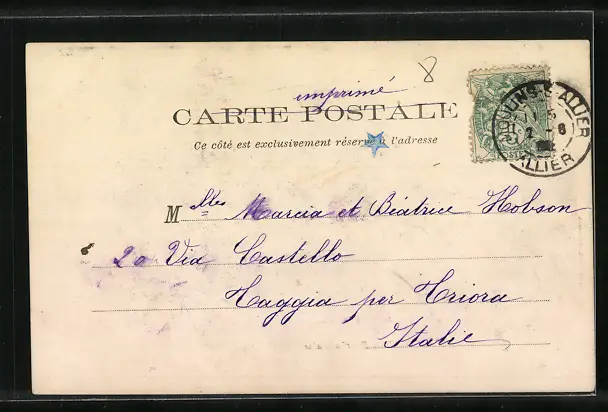 8
imprimé
CARTE POSTALE
Ce côté est exclusivement réservé à l'adresse
MOULINS-S-ALLIER
ALLIER
Mlles Marcia et Béatrice Hobson
20 Via Castello
Taggia per Triora
Italie